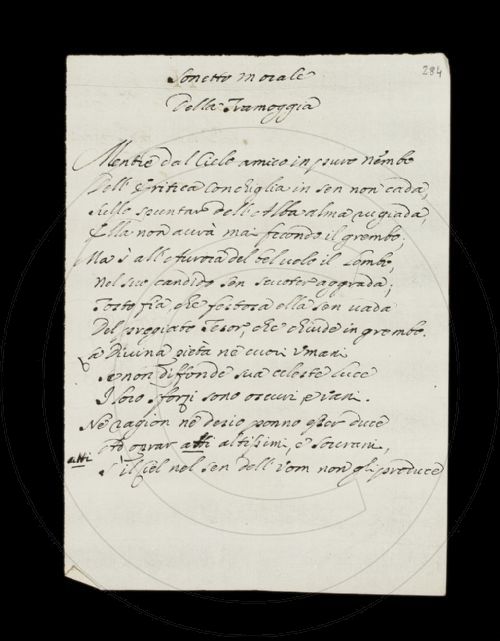 284
Sonetto Morale
Della Tramoggia
Mentre dal Cielo amico in puro nembo
Dell' Eritrea Conchiglia in sen non cada,
Nello spuntar dell' Alba alma rugiada,
Ella non avrà mai fecondo il grembo.
Ma s' all' Aurora del bel velo il lembo,
Nel suo candido sen scuoter aggrada;
Tosto fia, che fastosa ella sen vada
Del pregiato Tesor, che chiude in grembo.
Divina pietà ne cuori umani
Se non difonde sua celeste luce
I loro sforzi sono oscuri e vani.
Ne ragion ne desio ponno esser duce
oprar atti altissimi, e sovrani,
atti
S' il Ciel nel sen dell' Uom non gli produce